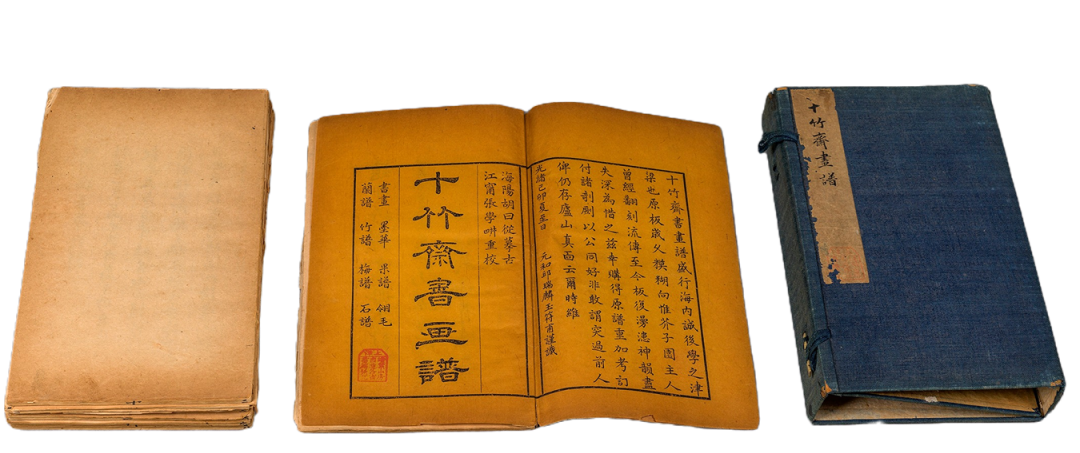 十竹齋書畫譜盛行海內誠後學之津
梁也原板歲久糢糊向惟芥子園主人
曾經翻刻流傳至今板復漫漶神韻盡
失深為惜之茲幸購得原譜重加考訂
付諸剞劂以公同好非敢謂突過前人
俾仍存廬山真面云爾時維
光緒己卯夏至日 元和邱瑞麟玉符甫謹識
海陽胡曰從摹古
江甯張學畊重校
十竹齋書画譜
書畫 墨華 果譜 翎毛
蘭譜 竹譜 梅譜 石譜
十竹齋畫譜